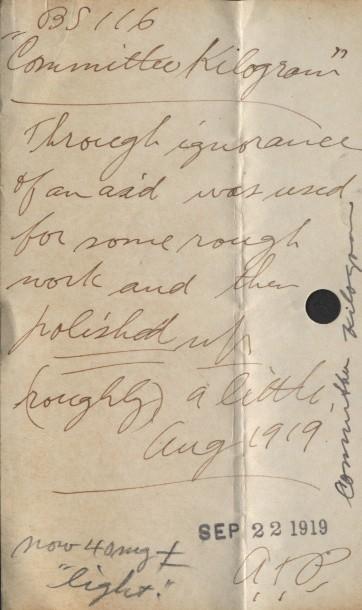 BS 116
"Committee Kilogram"
Through ignorance
of an aid was used
for some rough
work and then
polished up
(roughly) a little,
Aug 1919
Committee Kilogram
SEP 22 1919
now 40 mg ±
"light."
A.T.P.